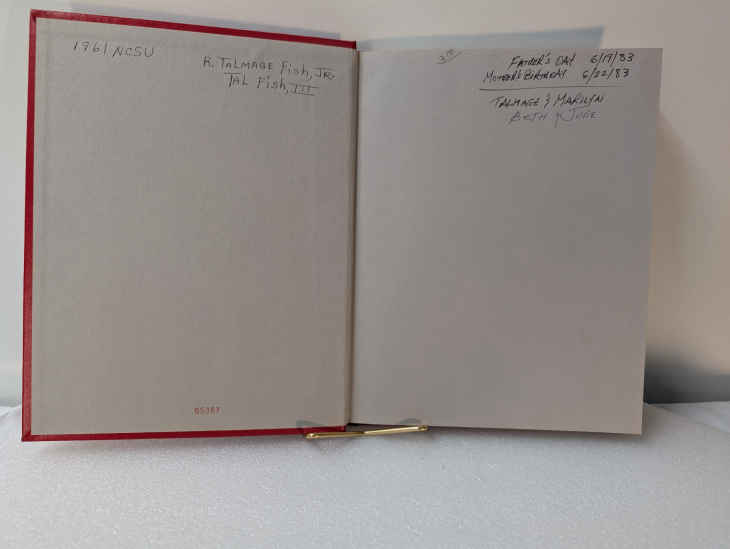 1961 NCSU
R. TALMAGE Fish, JR.
TAL Fish, III
65367
FATHER'S DAY 6/19/83
MOTHER'S BIRTHDAY 6/22/83
TALMAGE & MARILYN
BETH &